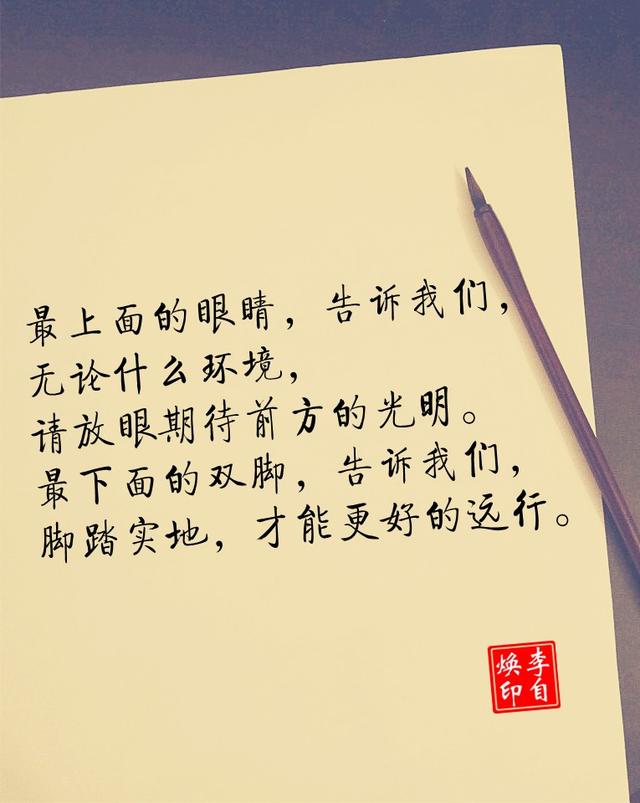 最上面的眼睛，告诉我们，
无论什么环境，
请放眼期待前方的光明。
最下面的双脚，告诉我们，
脚踏实地，才能更好的远行。
李自
焕印